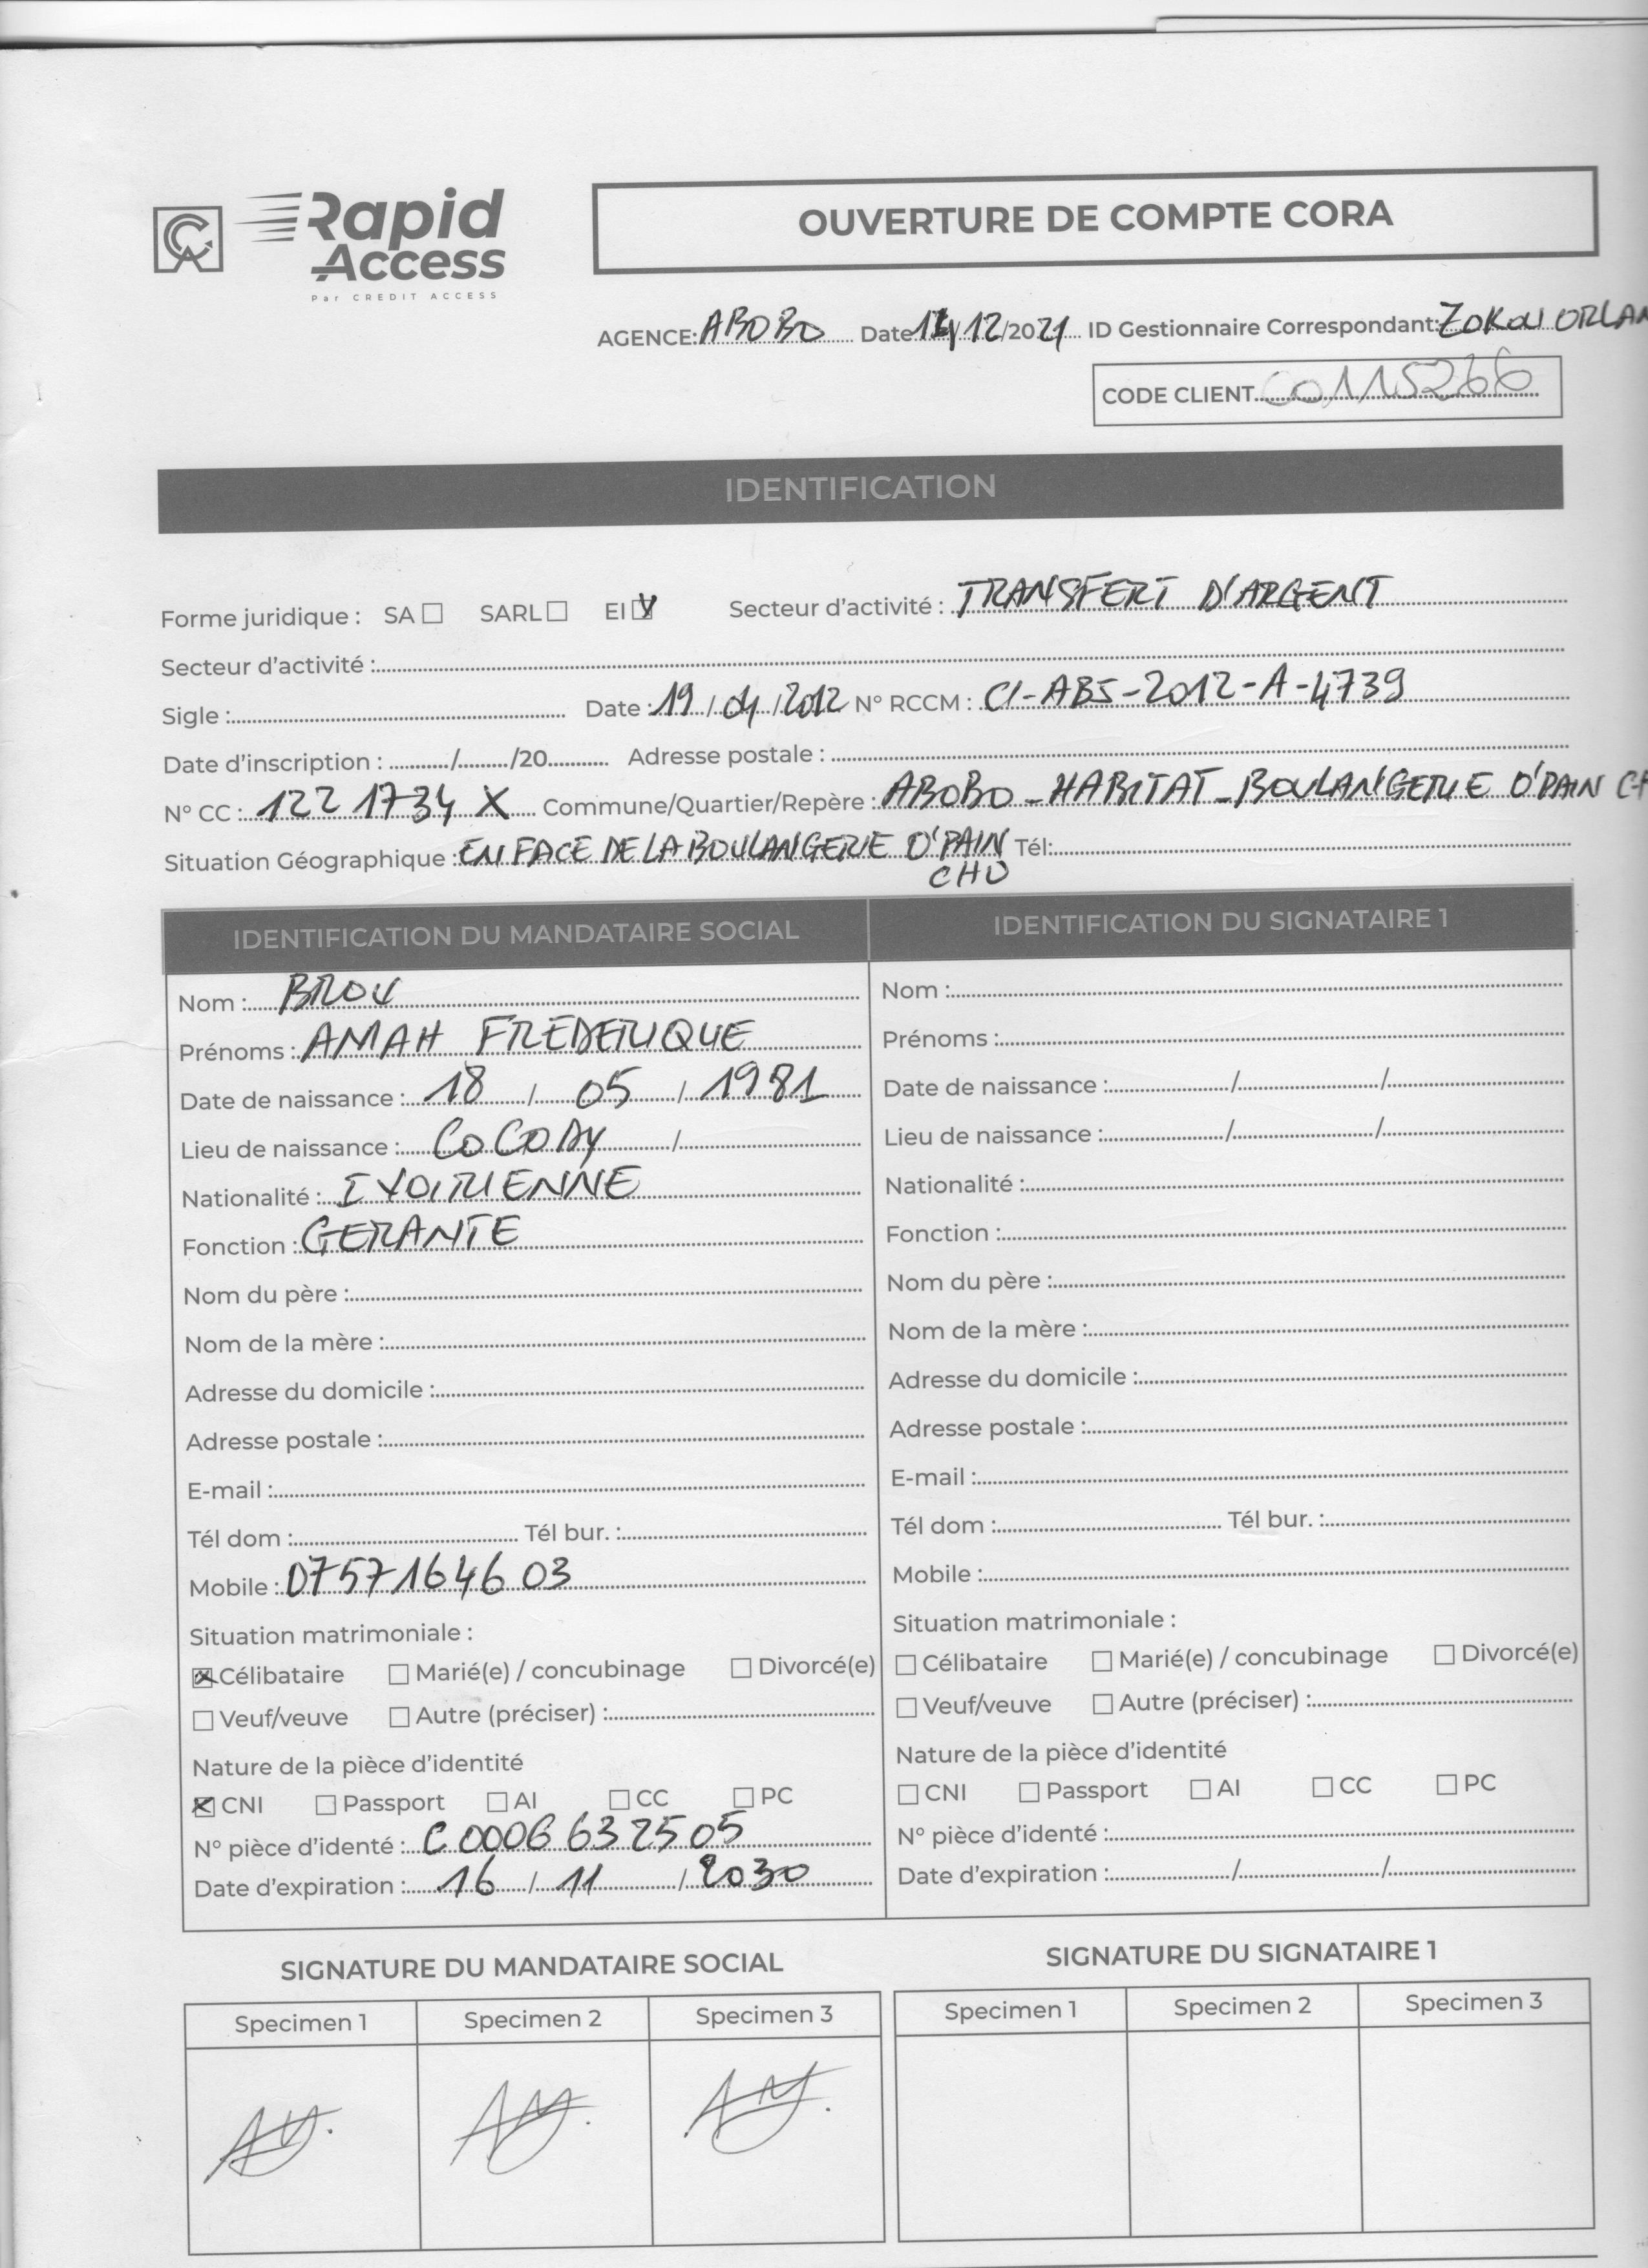 Rapid
Access
Par CREDIT ACCESS
OUVERTURE DE COMPTE CORA
AGENCE: ABOBO Date 14/12/2021 ID Gestionnaire Correspondant: ZOKOU ORLAN
CODE CLIENT CO115266
IDENTIFICATION
Forme juridique : SA SARL EI Secteur d'activité : TRANSFERT D'ARGENT
Secteur d'activité :
Sigle : Date : 19 / 04 / 2012 N° RCCM : CI-ABJ-2012-A-4739
Date d'inscription : / /20 Adresse postale :
N° CC : 122 1734 X Commune/Quartier/Repère : ABOBO - HABITAT - BOULANGERIE O'PAIN
Situation Géographique : EN FACE DE LA BOULANGERIE O'PAIN Tél:
CHO
IDENTIFICATION DU MANDATAIRE SOCIAL
Nom : BROU
Prénoms : AMAH FREDERIQUE
Date de naissance : 18 / 05 / 1981
Lieu de naissance : COCODY /
Nationalité : IVOIRIENNE
Fonction : GERANTE
Nom du père :
Nom de la mère :
Adresse du domicile :
Adresse postale :
E-mail :
Tél dom : Tél bur. :
Mobile : 07571646 03
Situation matrimoniale :
Célibataire Marié(e) / concubinage Divorcé(e)
Veuf/veuve Autre (préciser) :
Nature de la pièce d'identité
CNI Passport AI CC PC
N° pièce d'identé : C 0006 632505
Date d'expiration : 16 / 11 / 2030
IDENTIFICATION DU SIGNATAIRE 1
Nom :
Prénoms :
Date de naissance : / /
Lieu de naissance : / /
Nationalité :
Fonction :
Nom du père :
Nom de la mère :
Adresse du domicile :
Adresse postale :
E-mail :
Tél dom : Tél bur. :
Mobile :
Situation matrimoniale :
Célibataire Marié(e) / concubinage Divorcé(e)
Veuf/veuve Autre (préciser) :
Nature de la pièce d'identité
CNI Passport AI CC PC
N° pièce d'identé :
Date d'expiration : / /
SIGNATURE DU MANDATAIRE SOCIAL
Specimen 1 Specimen 2 Specimen 3
SIGNATURE DU SIGNATAIRE 1
Specimen 1 Specimen 2 Specimen 3